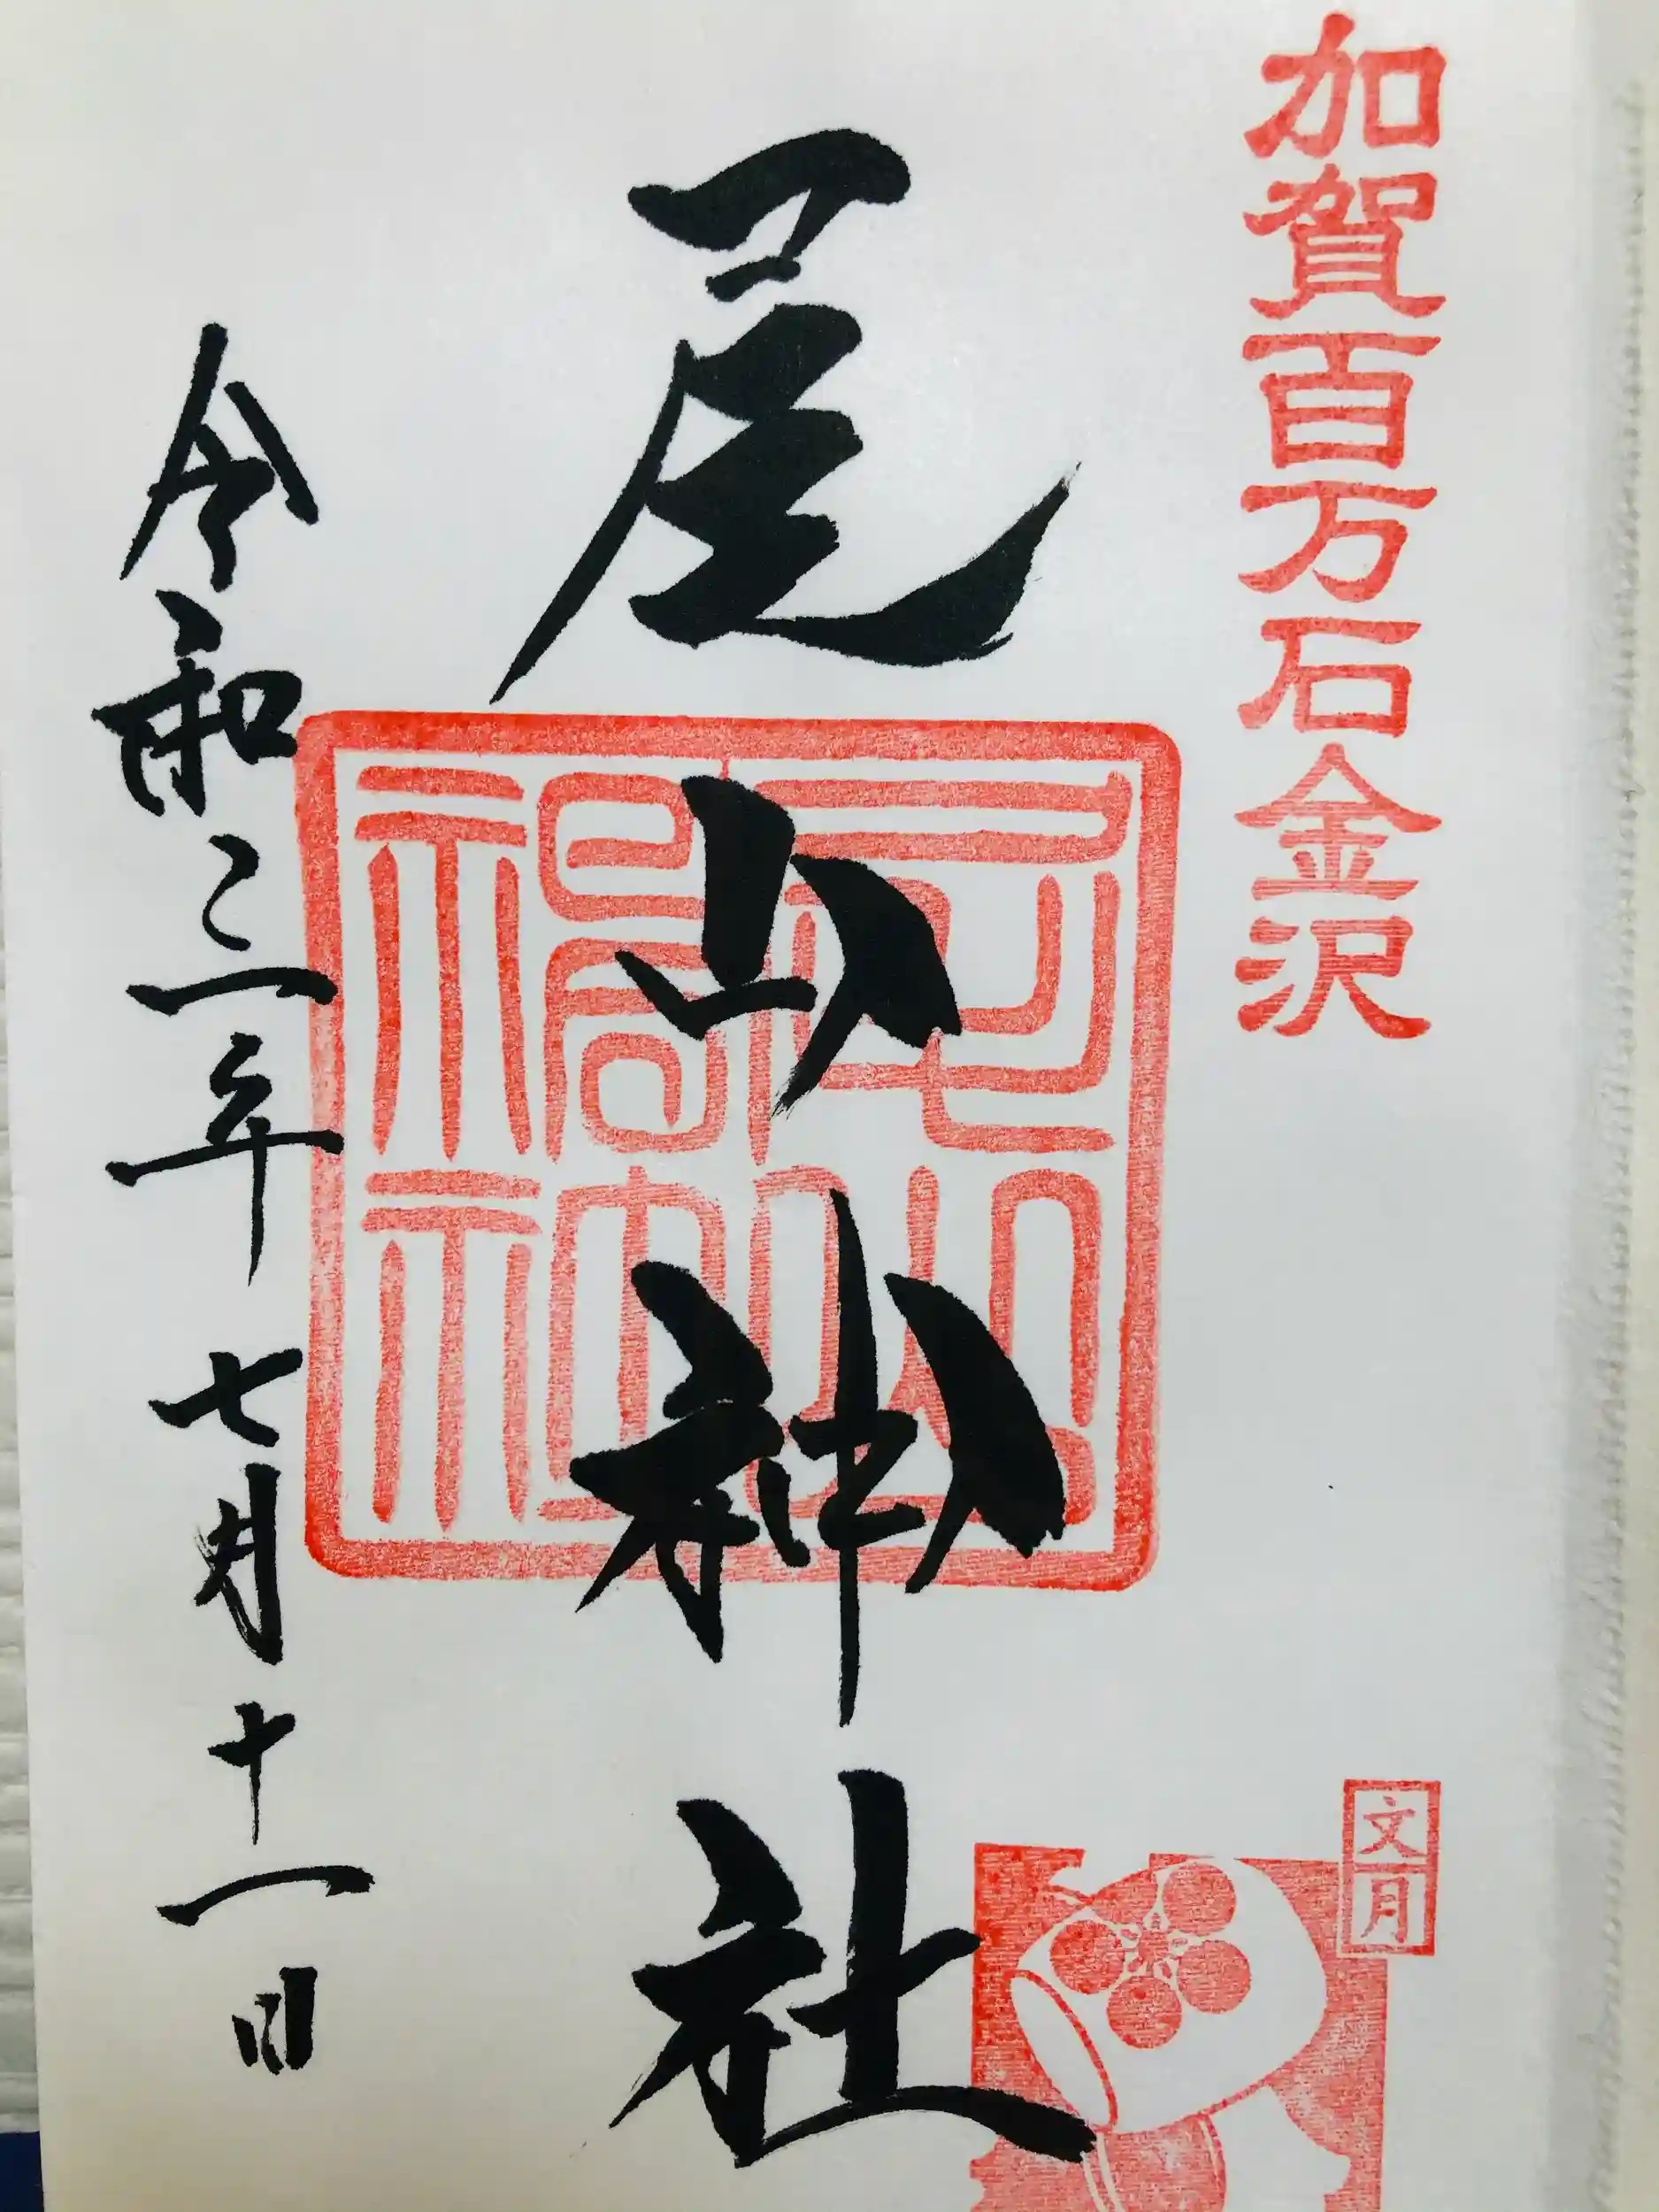 加賀百万石金沢
文月
尾山神社
尾山
神社
令和三年七月十一日